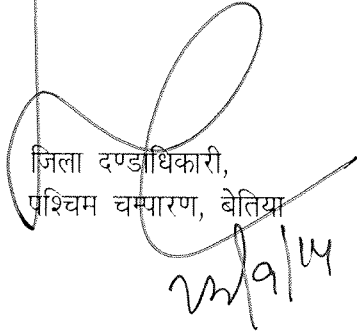 जिला दण्डाधिकारी,
पश्चिम चम्पारण, बेतिया